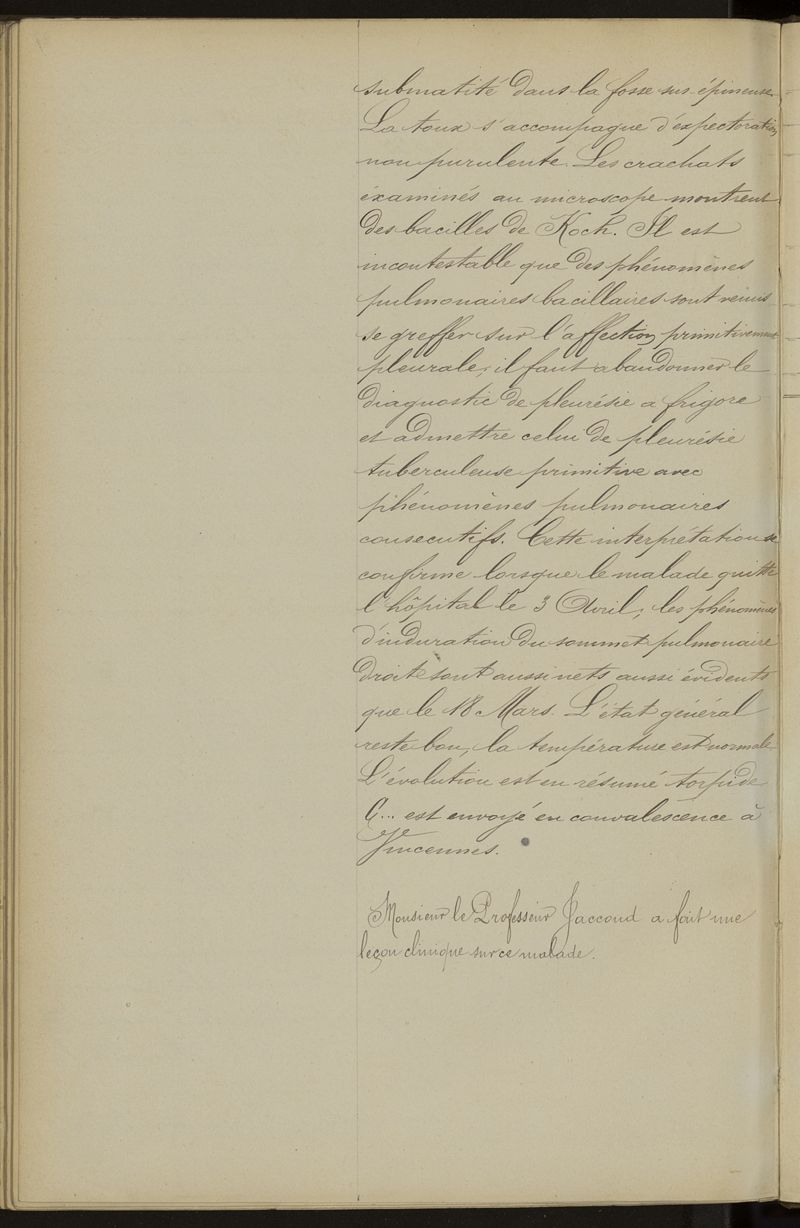 submatité dans la fosse sus épineuse.
La toux s'accompagne d'expectoration
non purulente. Les crachats
éxaminés au microscope montrent
des bacilles de Koch. Il est
incontestable que des phénomènes
pulmonaires bacillaires sont venus
se greffer sur l'affection primitivement
pleurale, il faut abandonner le
diagnostic de pleurésie a frigore
et admettre celui de pleurésie
tuberculeuse primitive avec
phénomènes pulmonaires
consecutifs. Cette interprétation se
confirme lorsque le malade quitte
l'hôpital le 3 Avril; les phénomènes
d'induration du sommet pulmonaire
droit sont aussi nets aussi évidents
que le 18 Mars. L'état général
reste bon, la température est normale
L'évolution est en résumé torpide
C... est envoyé en convalescence à
Vincennes.
Monsieur le Professeur Jaccoud a fait une
leçon clinique sur ce malade.